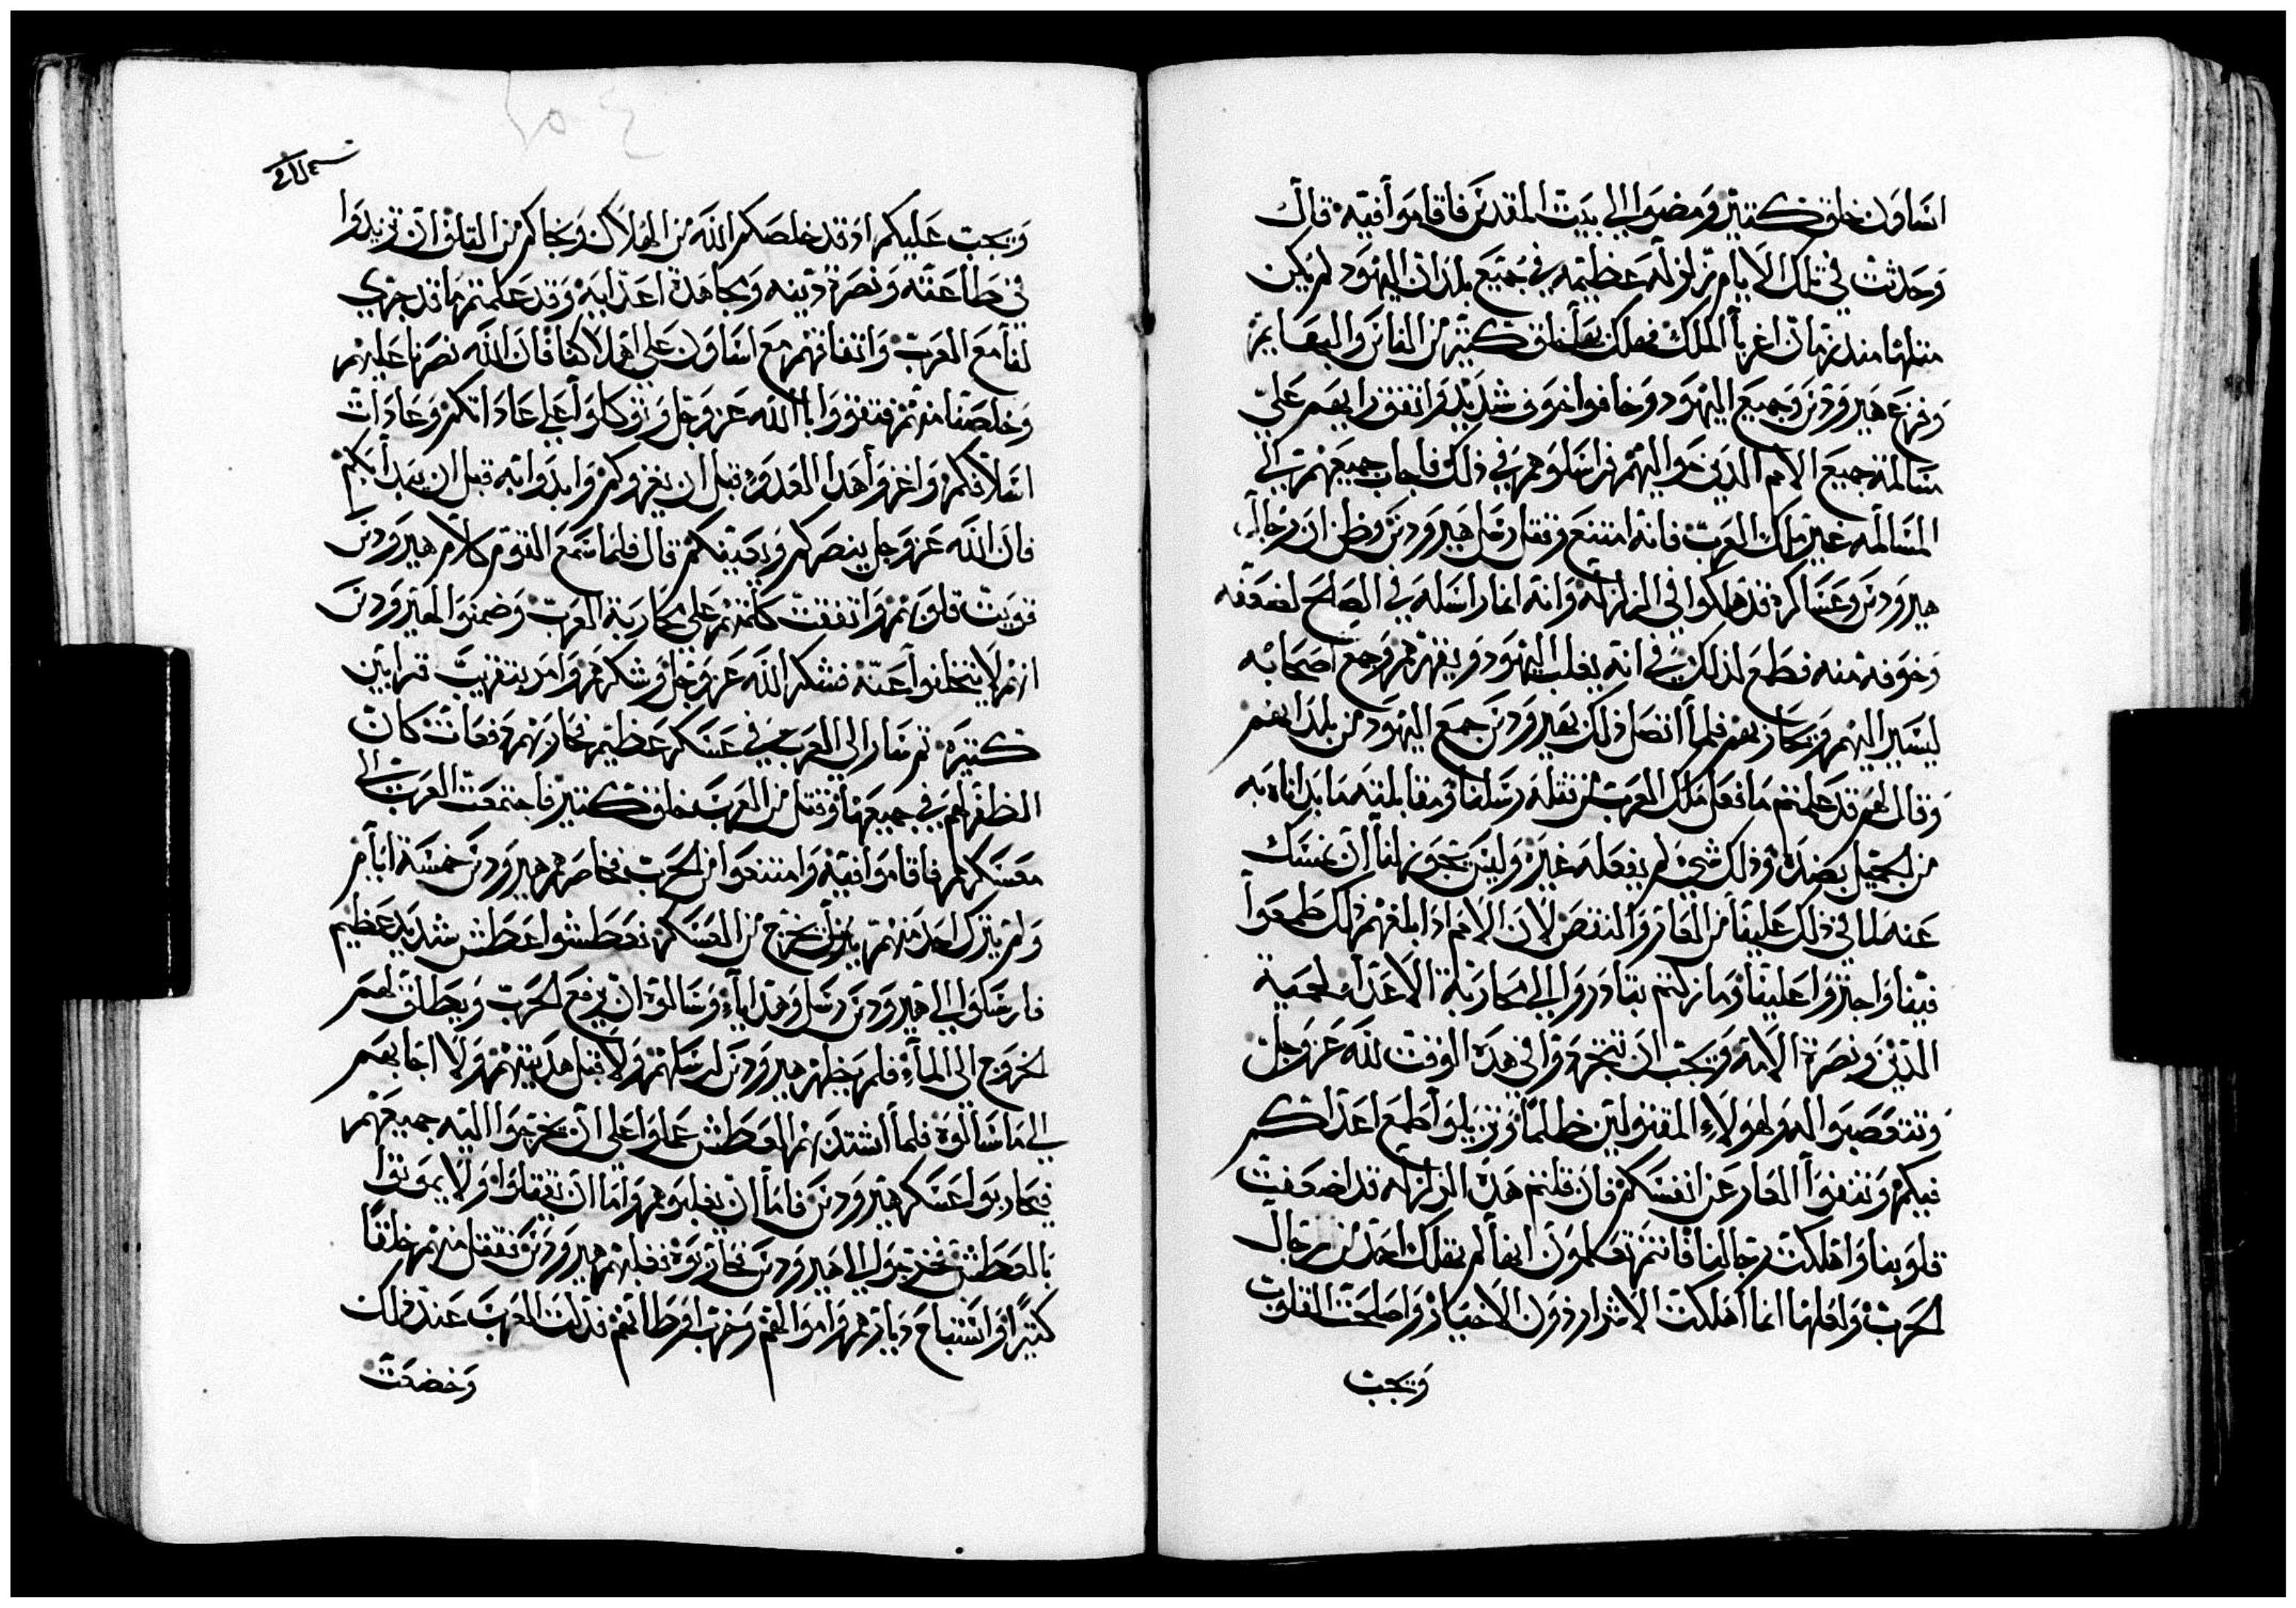 انساون خلق كتير ومضوا الي بيت المقدس فاقاموا فيه قال
وحدثت في تلك الايام زلزله عظيمه في جميع بلدان اليهود لم يكن
متلها مند زمان اغربا الملك فهلك بها خلق كتير من الناس والبهايم
وفزع هيرودس وجميع اليهود وخافوا خوف شديد واتفق رايهم علي
مسالمة جميع الامم الدين حواليهم فراسلوهم في ذلك فاجاب جميعهم الي
المسالمه غير ملك العرب فانه امتنع وقتل رسل هيرودس وظن ان رجال
هيرودس وعساكره قد هلكوا في الزلزله وانه انما راسله في الصلح لضعفه
وخوفه منه فطمع لذلك في انه يغلب اليهود ويقهرهم وجمع اصحابه
ليسير اليهم ويحاربهم فلما اتصل ذلك بهيرودس جمع اليهود من بلدانهم
وقال لهم قد علمتم ما فعل ملك العرب من قتله رسلنا ومقابلته ما بداناه به
من الجميل بضده وذلك شي لم يفعله غيره وليس يجوز لنا ان نمسك
عنه لما في ذلك علينا من العار والنقص لان الامم ادا بلغهم ذلك طمعوا
فينا واجتروا علينا وما زلتم تبادروا الي محاربة الاعدا لحمية
الدين ونصرة الامة ويجب ان تتجردوا في هده الوقت لله عز وجل
وتتعصبوا له ولهولاء المقتولين ظلما وتزيلوا طمع اعداكم
فيكم وتنفوا العار عن انفسكم فان قلتم هده الزلزله قد اضعفت
قلوبنا واهلكت رجالنا فانتم تعلمون انها لم تهلك احد من رجال
الحرب ولعلها انما اهلكت الاشرار دون الاخيار واصلحت القلوب
ويجب
ويجب عليكم اد قد خلصكم الله من الهلاك ونجاكم من التلف ان تزيدوا
في طاعته ونصرة دينه ومجاهدة اعدايه وقد علمتم ما قد جري
لنا مع العرب واتفاقهم مع انساون علي اهلاكنا فان الله نصرنا عليهم
وخلصنا منهم فتقووا بالله عز وجل وتوكلوا علي عاداتكم وعادات
اسلافكم واغزوا هدا العدو قبل ان يغزوكم وابدوا به قبل ان يبدا بكم
فان الله عز وجل ينصركم ويعينكم قال فلما سمع القوم كلام هيرودس
قويت قلوبهم واتفقت كلمتهم علي محاربة العرب وضمنوا لهيرودس
انهم لا يتخلفوا عنه فشكر الله عز وجل وشكرهم وامر بتقريب قرابين
كتيره ثم سار الي العرب في عسكر عظيم فحاربهم دفعات كان
الظفر لهم في جميعها وقتل من العرب خلق كتير فاجتمعت العرب الي
معسكرهم فاقاموا فيه وامتنعوا من الحرب فحاصرهم هيرودس خمسة ايام
ولم يترك احد منهم يخرج من العسكر فعطشوا عطش شديد عظيم
فارسلوا الي هيرودس رسل وهدايا وسالوه ان يرفع الحرب ويطلق لهم
الخروج الي الماء فلم يظهر هيرودس لرسلهم ولا قبل هديتهم ولا اجابهم
الي ما سالوه فلما اشتد بهم العطش عملوا علي ان يخرجوا اليه جميعهم
فيحاربوا عسكر هيرودس فاما ان يغلبوهم واما ان يقتلوا ولا يموتوا
بالعطش فخرجوا الي هيرودس فحاربوه فغلبهم هيرودس فقتل منهم خلقا
كتيرا واستباح ديارهم واموالهم وخرب اوطانهم فدلت العرب عند ذلك
وخضعت